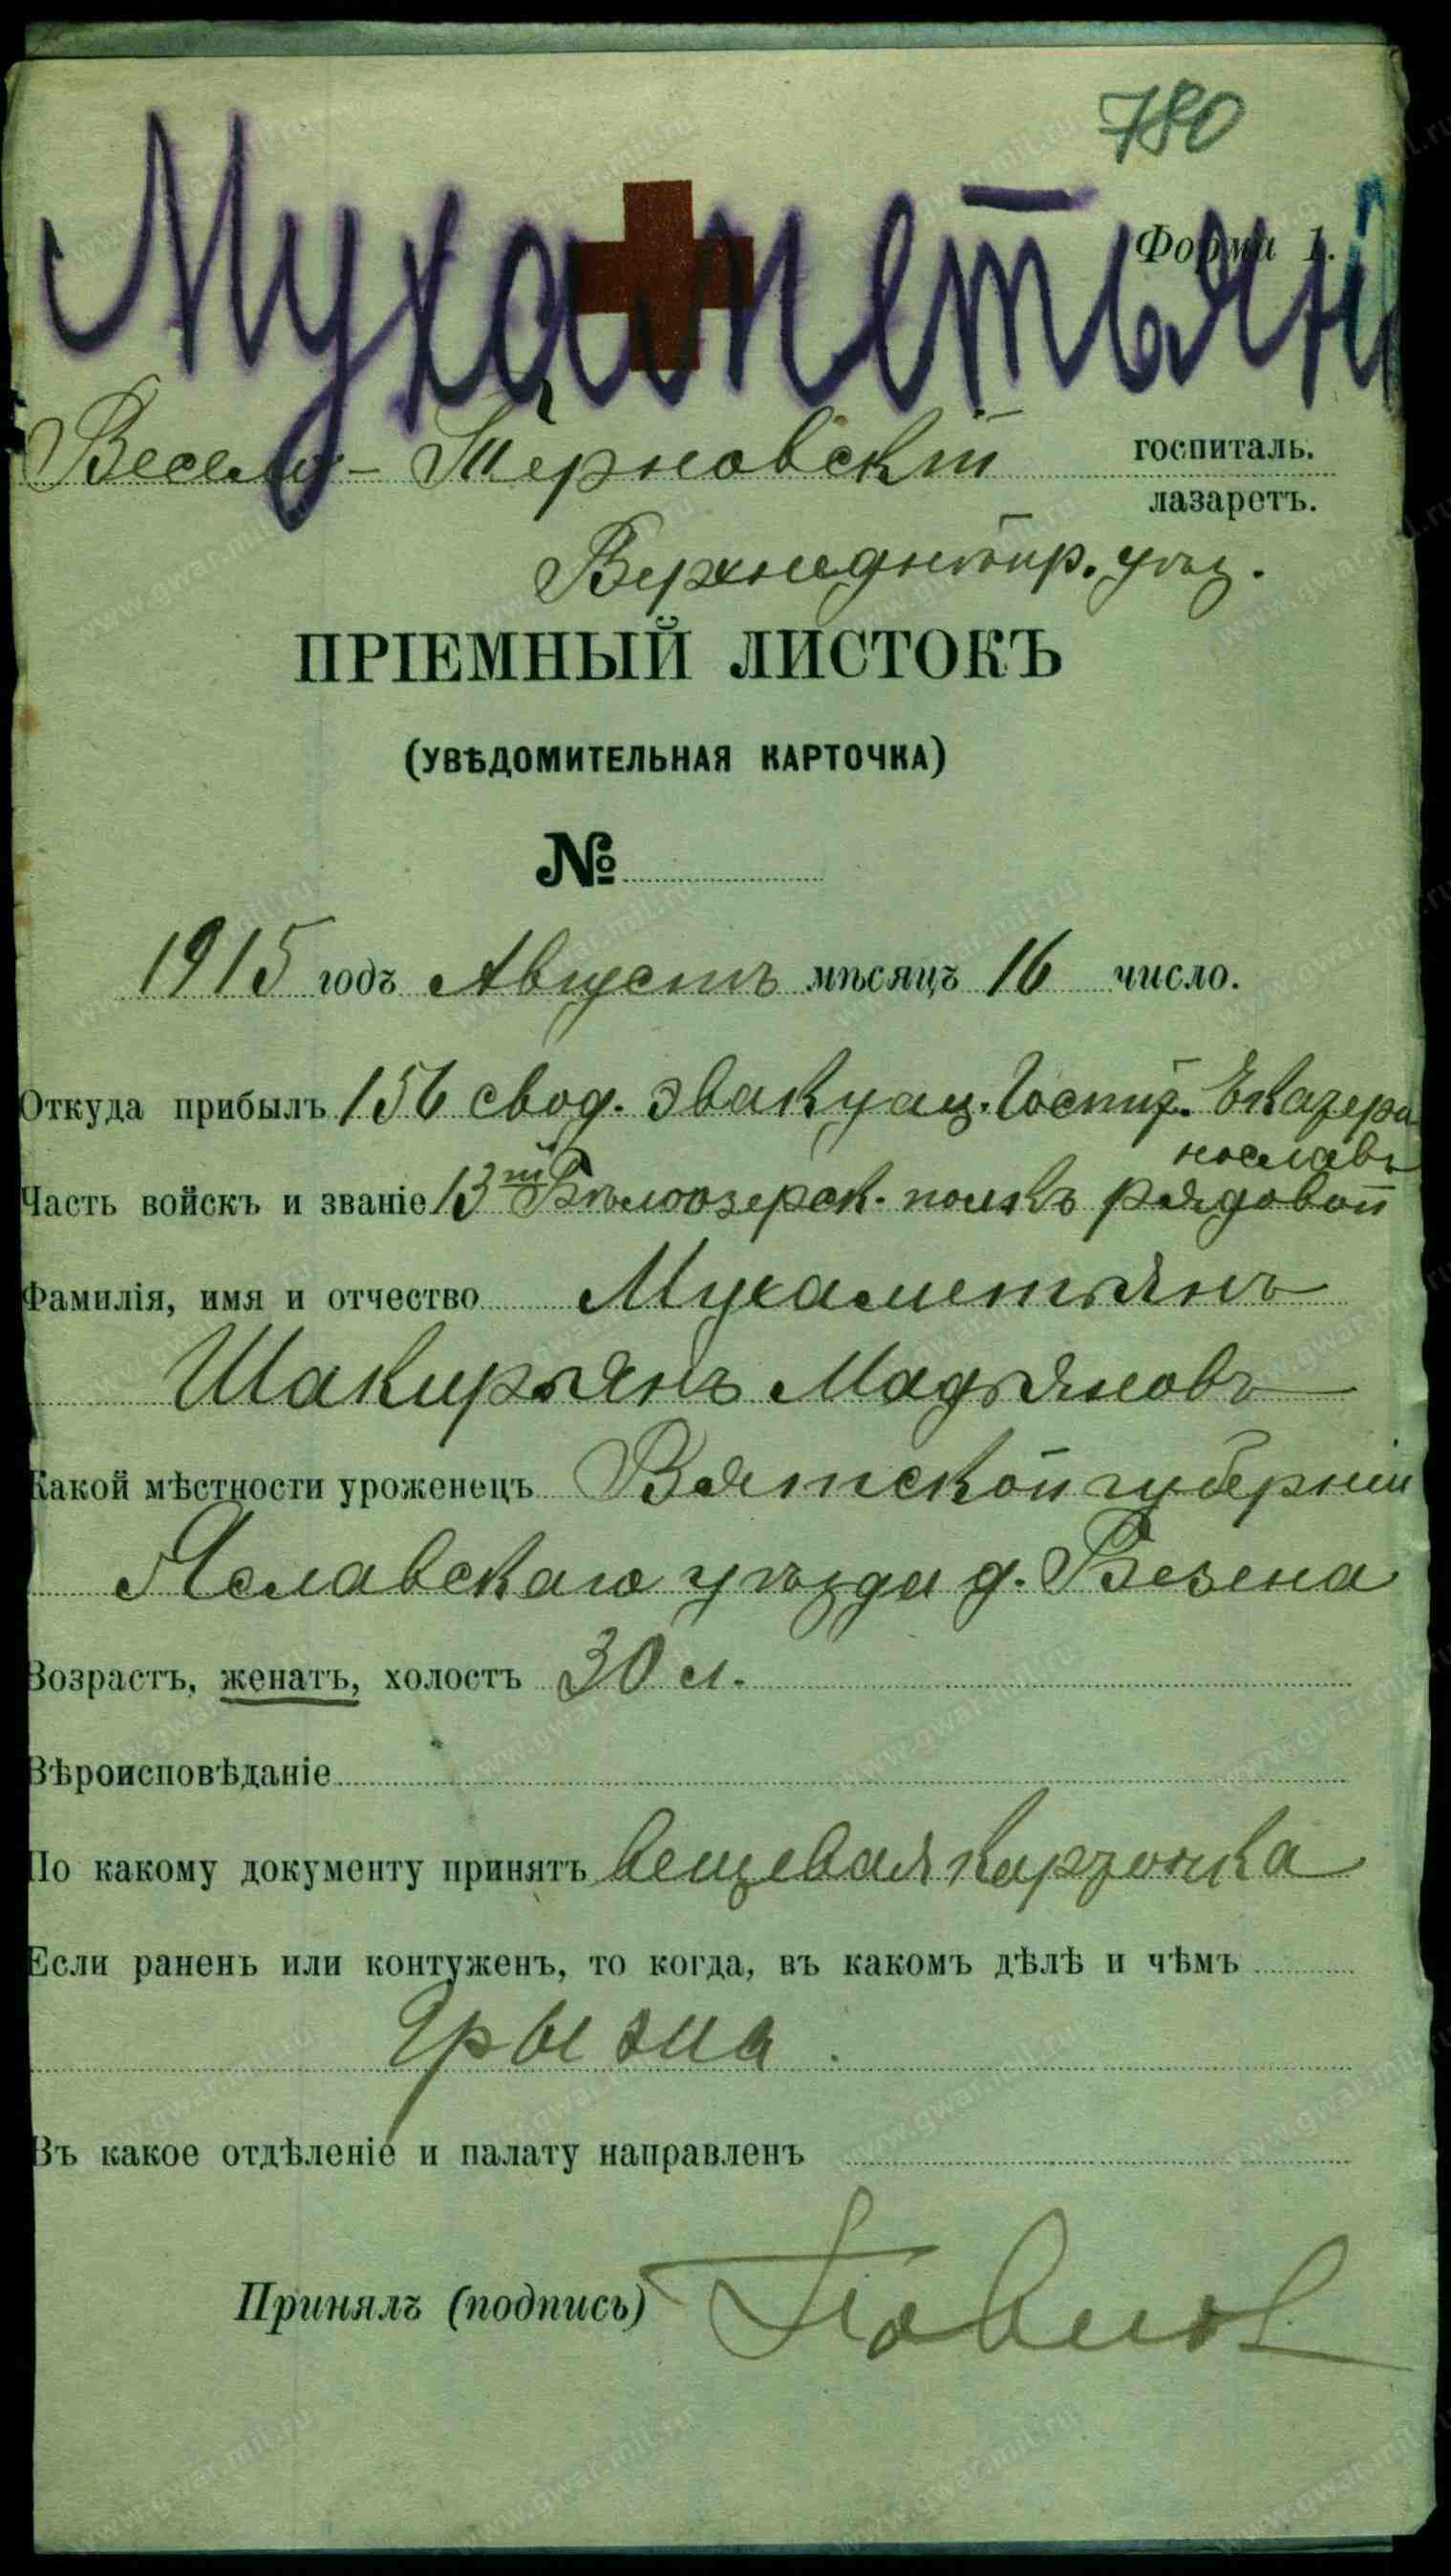 780
Мухаметьян
Форма 1.
Весело-Терновскій госпиталь.
лазаретъ.
Верхнеднѣпр. уѣз.
ПРІЕМНЫЙ ЛИСТОКЪ
(УВѢДОМИТЕЛЬНАЯ КАРТОЧКА)
№
1915 годъ Августъ мѣсяцъ 16 число.
Откуда прибылъ 156 свод. эвакуац. Госпит. Екатери
нославъ
Часть войскъ и званіе 13й Бѣлоозерск. полкъ рядовой
Фамилія, имя и отчество Мухаметьянъ
Шакирьянъ Мадьяновъ
Какой мѣстности уроженецъ Вятской губерніи
Яславскаго уѣзда д.
Возрастъ, женатъ, холостъ 30 л.
Вѣроисповѣданіе
По какому документу принятъ вещевая карточка
Если раненъ или контуженъ, то когда, въ какомъ дѣлѣ и чѣмъ
Грызша
Въ какое отдѣленіе и палату направленъ
Принялъ (подпись)